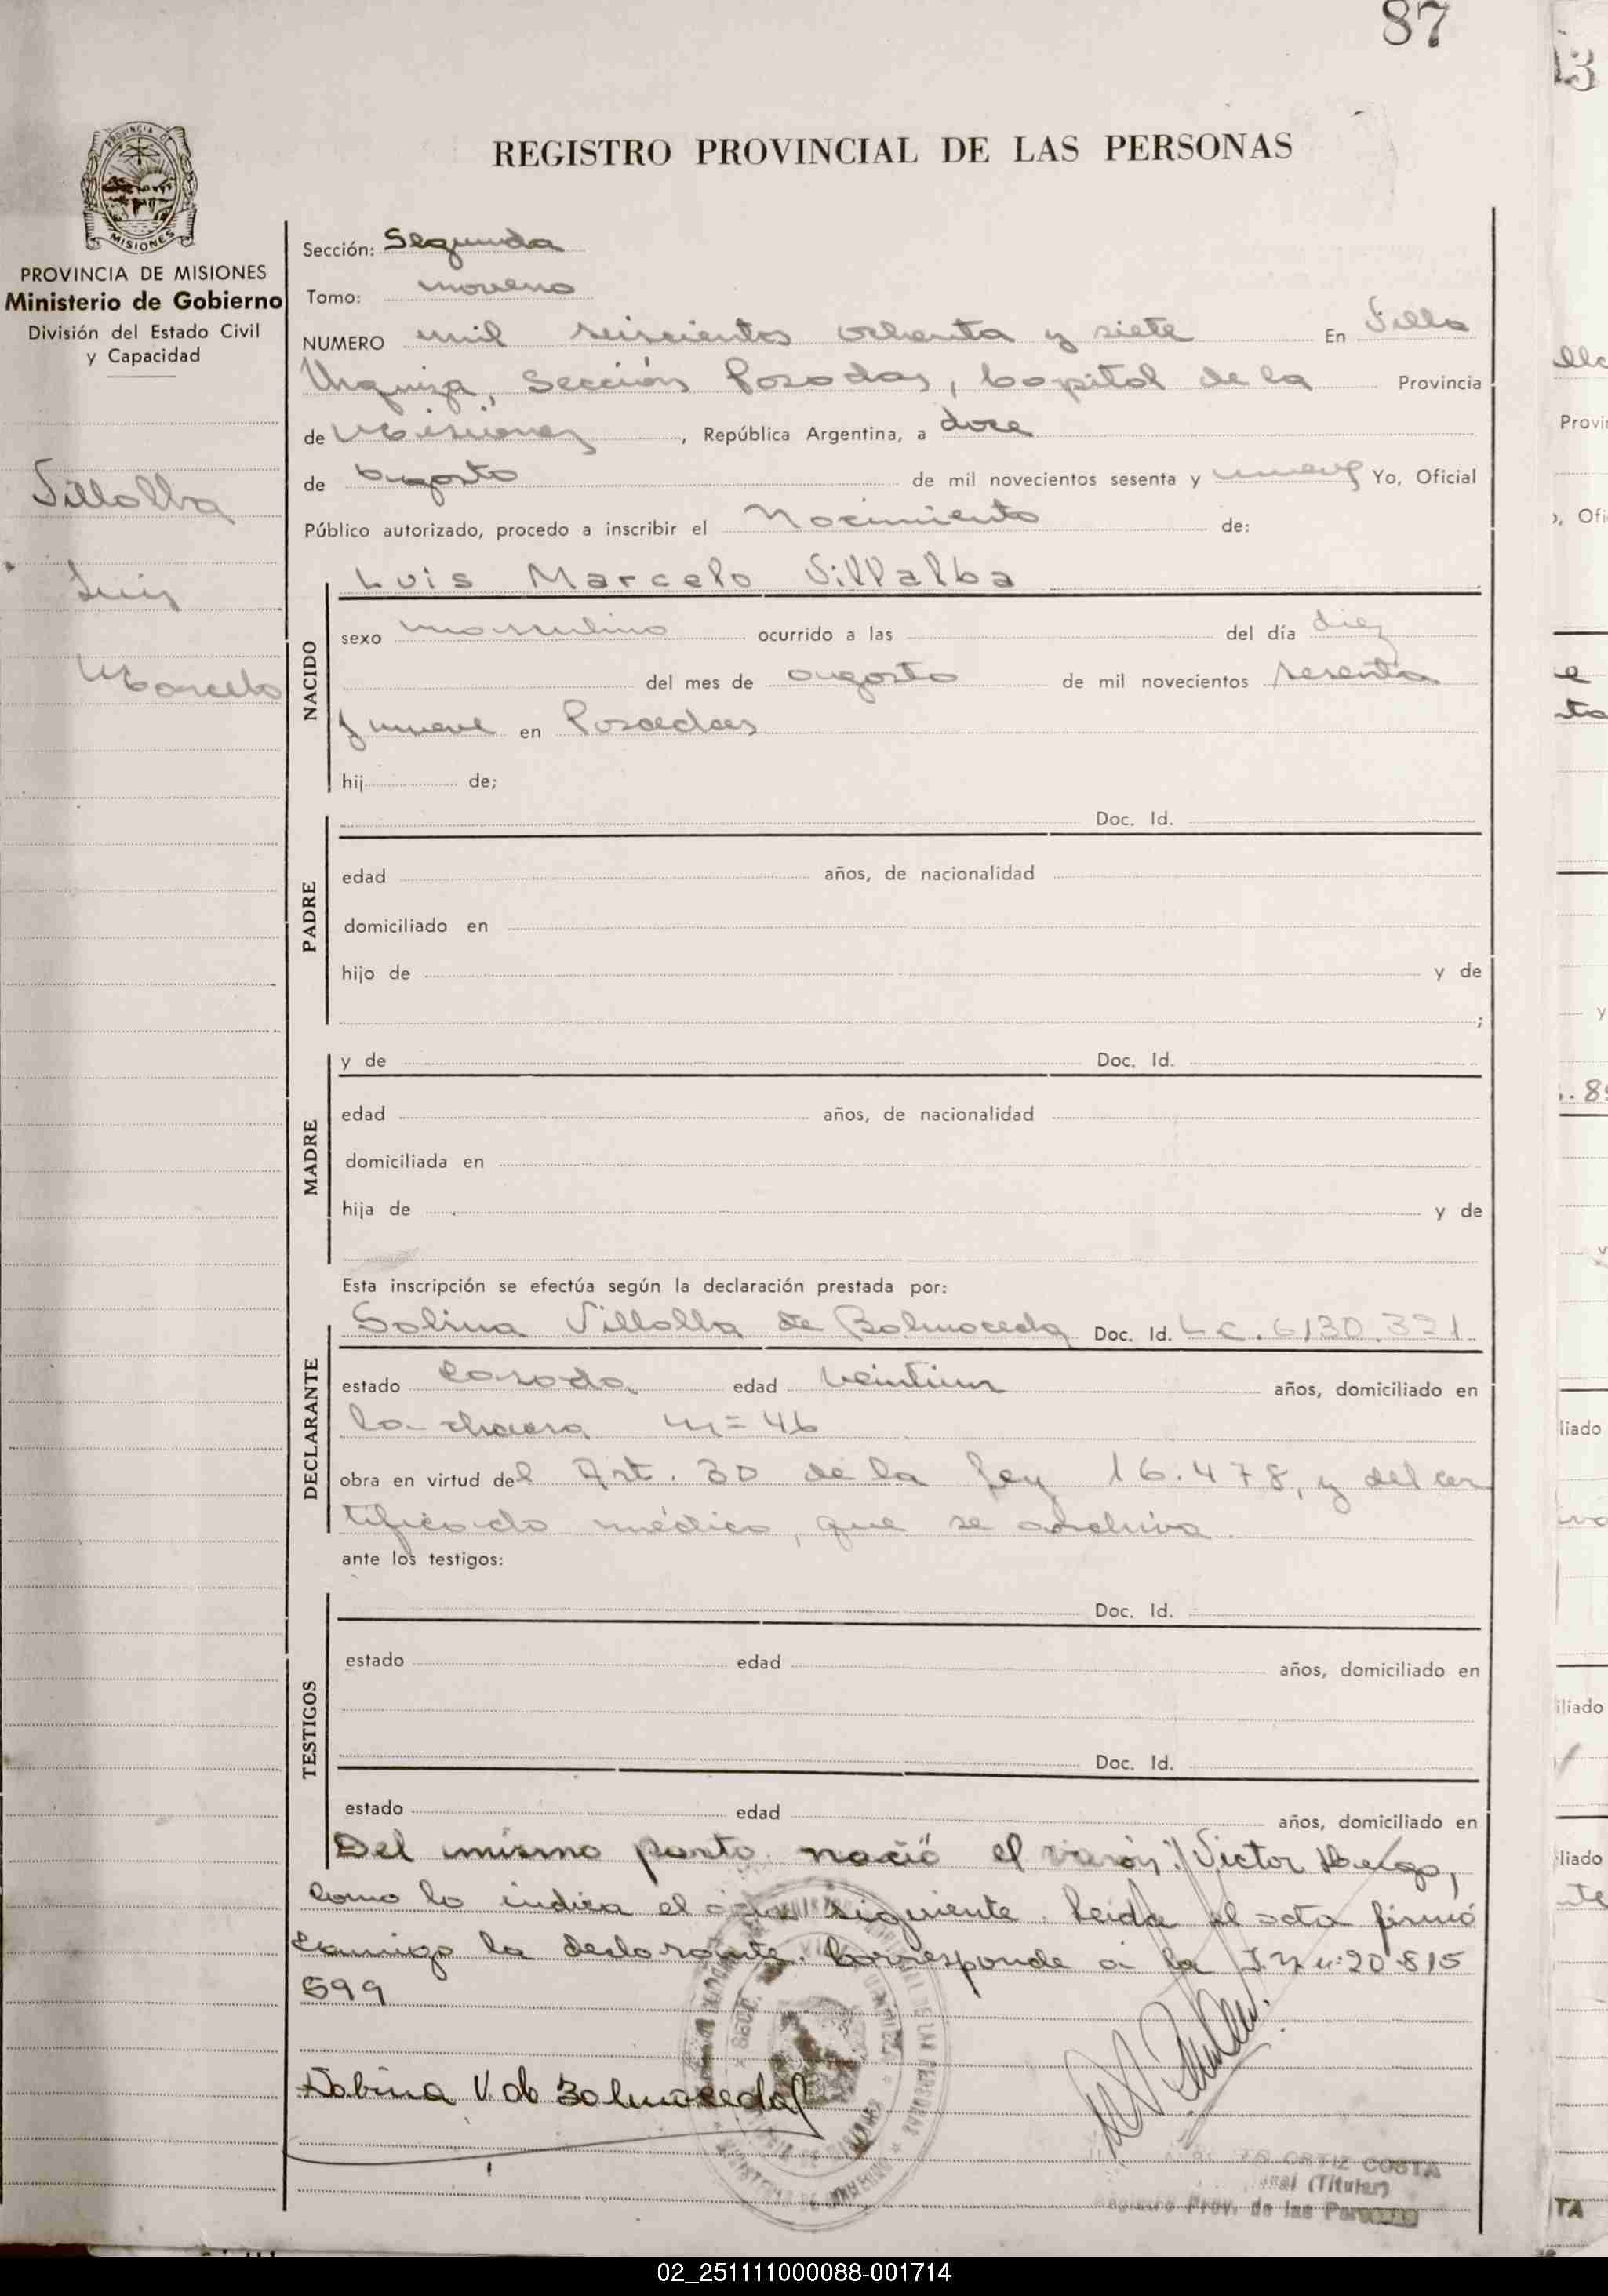 87
REGISTRO PROVINCIAL DE LAS PERSONAS
PROVINCIA DE
MISIONES
PROVINCIA DE MISIONES
Ministerio de Gobierno
División del Estado Civil
y Capacidad
Villalba
Luis
Marcelo
Sección: Segunda
Tomo: noveno
NUMERO mil seiscientos ochenta y siete En Villa
Urquiza, Sección Posadas, Capital de la Provincia
de Misiones, República Argentina, a doce
de agosto de mil novecientos sesenta y nueve Yo, Oficial
Público autorizado, procedo a inscribir el Nacimiento de:
Luis Marcelo Villalba
NACIDO
sexo masculino ocurrido a las del día diez
del mes de agosto de mil novecientos sesenta
y nueve en Posadas
hij de;
PADRE
Doc. Id.
edad años, de nacionalidad
domiciliado en
hijo de y de
;
MADRE
y de Doc. Id.
edad años, de nacionalidad
domiciliada en
hija de y de
Esta inscripción se efectúa según la declaración prestada por:
DECLARANTE
Sabina Villalba de Balmaceda Doc. Id. L.C. 6130.321
estado casada edad veintiun años, domiciliado en
la chacra n=46
obra en virtud del Art. 30 de la Ley 16.478, y del cer
tificado médico, que se archiva.
ante los testigos:
TESTIGOS
Doc. Id.
estado edad años, domiciliado en
Doc. Id.
estado edad años, domiciliado en
Del mismo parto nació el varón: Victor Hugo,
como lo indica el acta siguiente. Leida el acta firmó
conmigo la declarante. Corresponde a la 20.815
599
Sabina V. de Balmaceda
ORTIZ COSTA
(Titular)
Registro Prov. de las Personas
02_251111000088-001714